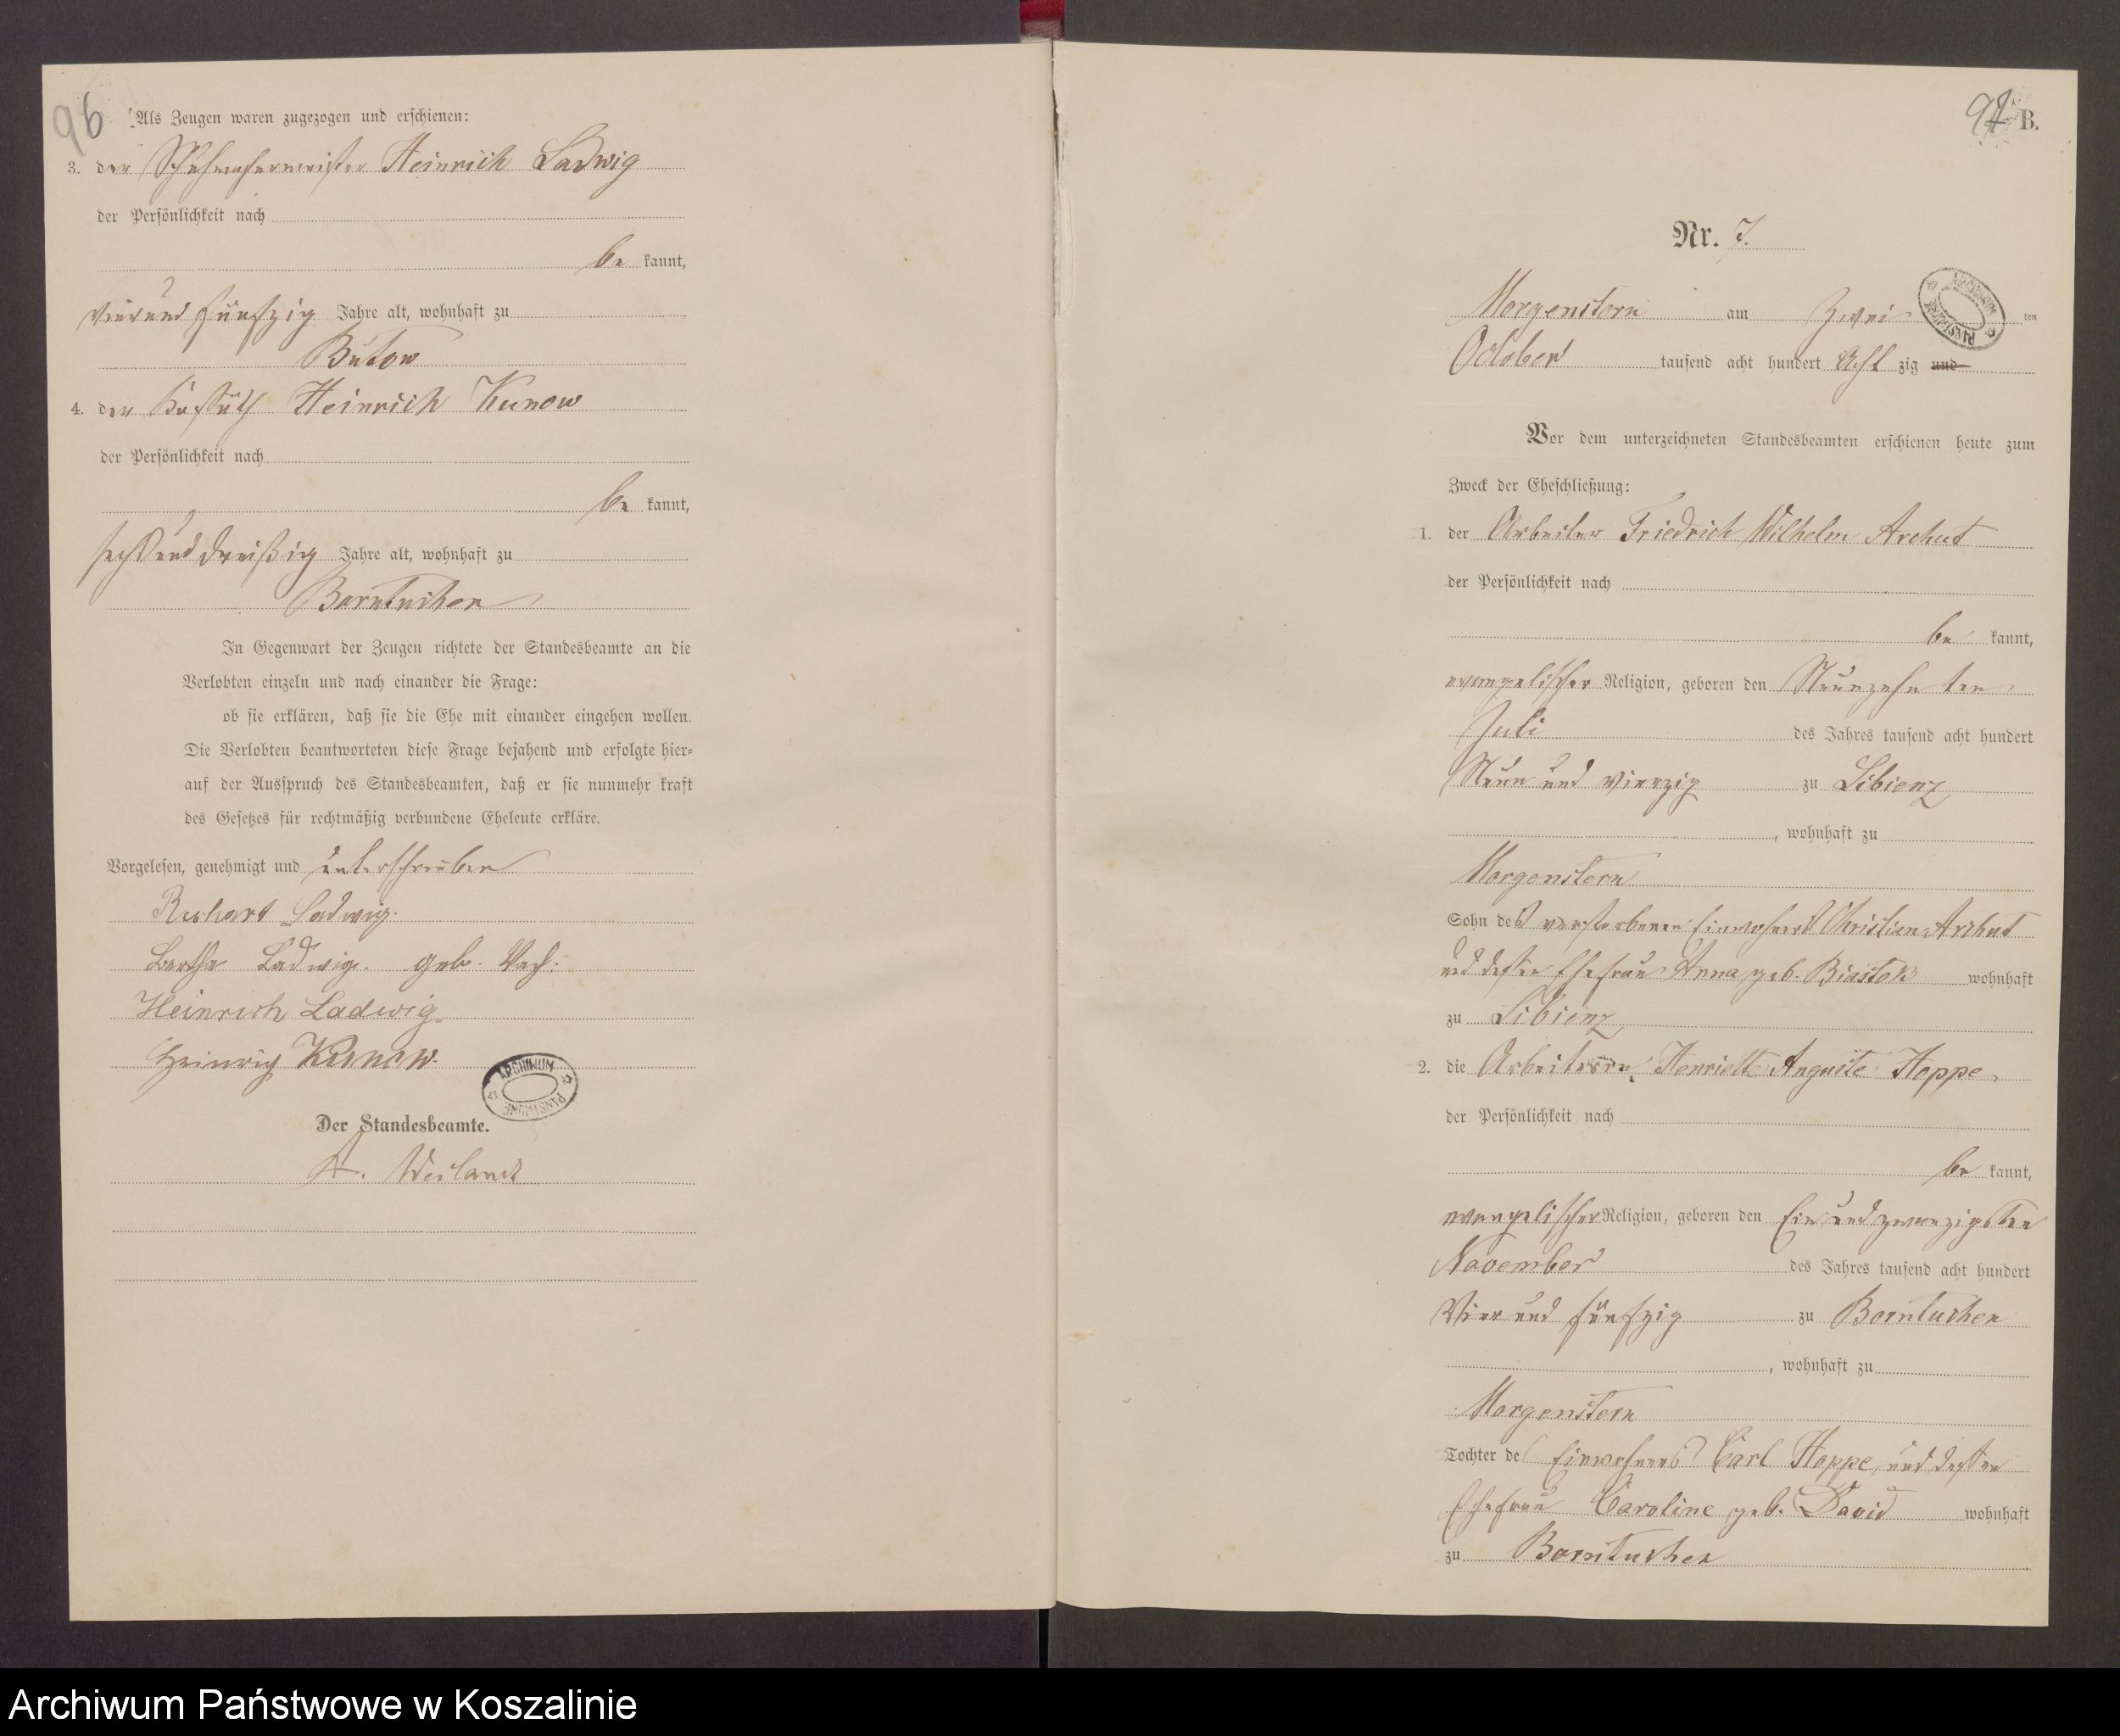 96
Als Zeugen waren zugezogen und erschienen:
3. der Schuhmachermeister Heinrich Ladwig
der Persönlichkeit nach
be kannt,
vierund fünfzig Jahre alt, wohnhaft zu
Bütow
4. der Heinrich Kunow
der Persönlichkeit nach
be kannt,
sechsund dreißig Jahre alt, wohnhaft zu
Borntuchen
In Gegenwart der Zeugen richtete der Standesbeamte an die
Verlobten einzeln und nach einander die Frage:
ob sie erklären, daß sie die Ehe mit einander eingehen wollen.
Die Verlobten beantworteten diese Frage bejahend und erfolgte hier-
auf der Ausspruch des Standesbeamten, daß er sie nunmehr kraft
des Gesetzes für rechtmäßig verbundene Eheleute erkläre.
Vorgelesen, genehmigt und unterschrieben
Ladwig.
Bertha Ladwig. geb.
Heinrich Ladwig
Heinrich Kunow.
ARCHIWUM PAŃSTWOWE
Der Standesbeamte.
A.
B.
Nr. 7.
Morgenstern am Zwei ten
ARCHIWUM PAŃSTWOWE
October tausend acht hundert Acht zig und
Vor dem unterzeichneten Standesbeamten erschienen heute zum
Zweck der Eheschließung:
1. der Arbeiter Friedrich Wilhelm Archut
der Persönlichkeit nach
be kannt,
evangelischer Religion, geboren den Neunzehn ten
Juli des Jahres tausend acht hundert
Neun und vierzig zu Libienz
, wohnhaft zu
Morgenstern
Sohn des verstorbenen Einwohners Christian Archut
und dessen Ehefrau Anna geb. Biastok wohnhaft
zu Libienz
2. die Arbeiterin Henriette Auguste Hoppe
der Persönlichkeit nach
be kannt,
evangelischer Religion, geboren den Einundzwanzigsten
November des Jahres tausend acht hundert
Vier und fünfzig zu Borntuchen
, wohnhaft zu
Morgenstern
Tochter des Einwohners Carl Hoppe und dessen
Ehefrau Caroline geb. David wohnhaft
zu Borntuchen
Archiwum Państwowe w Koszalinie